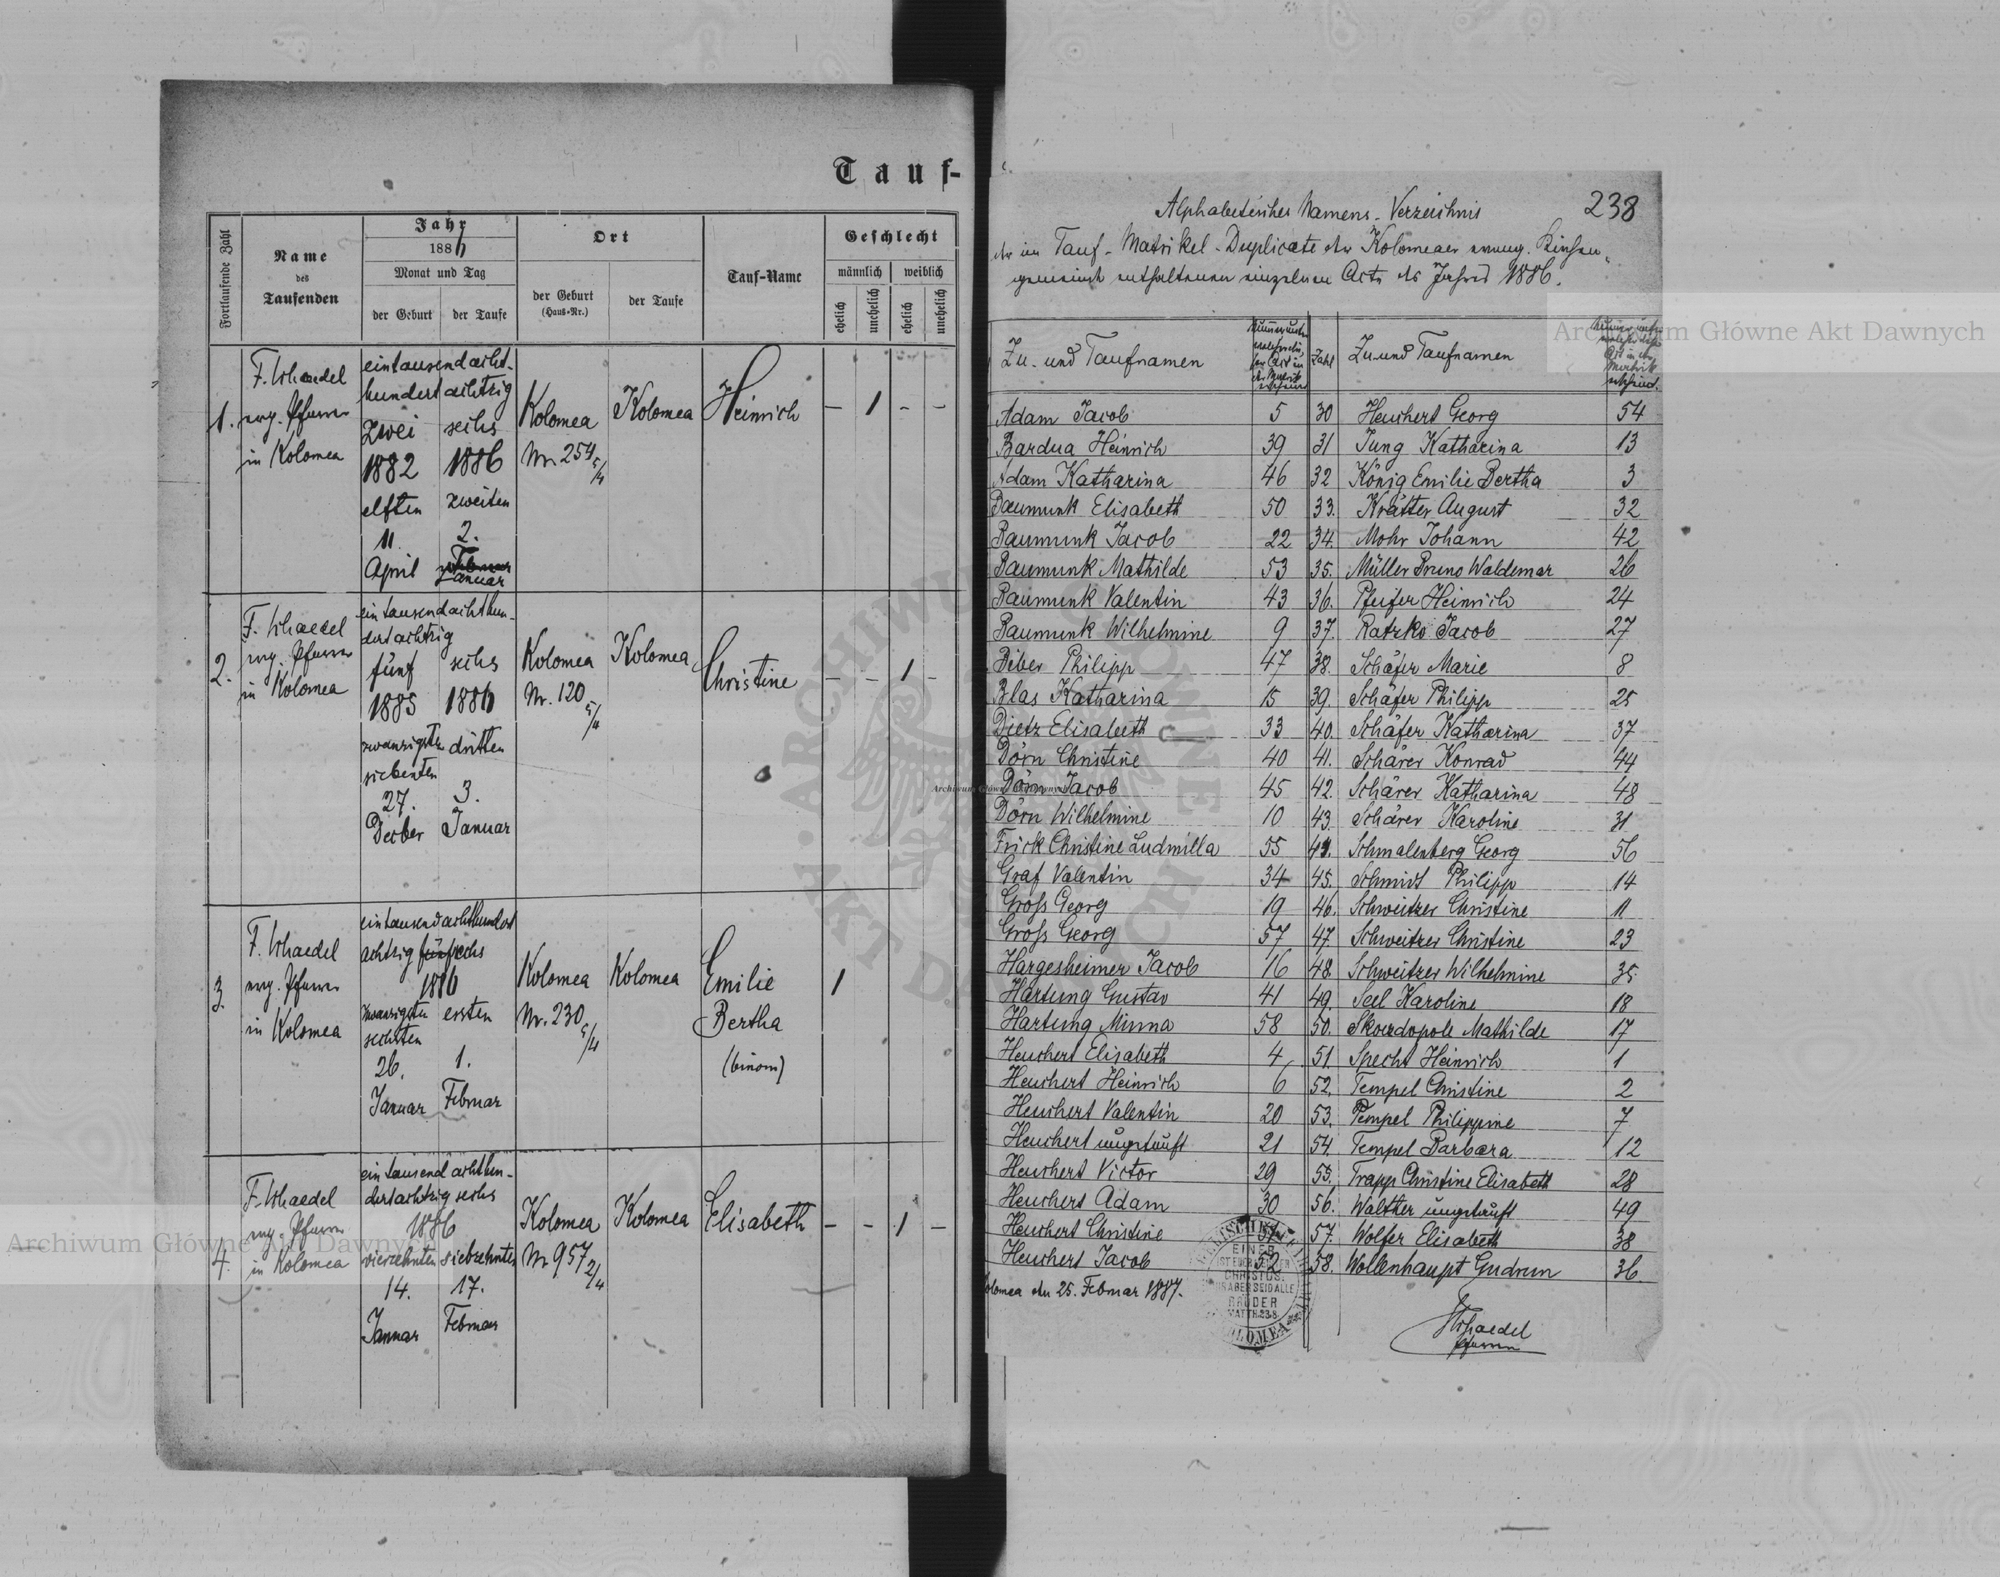 Tauf-
Fortlaufende Zahl
Name
des
Taufenden
Jahr
1886
Monat und Tag
der Geburt
der Taufe
Ort
der Geburt
(Haus-Nr.)
der Taufe
Tauf-Name
Geschlecht
männlich
weiblich
ehelich
unehelich
ehelich
unehelich
1.
F. Schaedel
evg. Pfarrer
in Kolomea
eintausend acht-
hundert achtzig
zwei sechs
1882 1886
elften zweiten
11. 2.
April Januar
Kolomea
Nr. 254
Kolomea
Heinrich
– 1 – –
2.
F. Schaedel
evg. Pfarrer
in Kolomea
eintausend achthun-
dert achtzig
fünf sechs
1885 1886
zwanzigsten dritten
siebenten
27. 3.
Dezber Januar
Kolomea
Nr. 120
Kolomea
Christine
– – 1 –
3.
F. Schaedel
evg. Pfarrer
in Kolomea
eintausend achthundert
achtzig fünf sechs
1886
zwanzigsten ersten
sechsten
26. 1.
Januar Februar
Kolomea
Nr. 230
Kolomea
Emilie
Bertha
(binom)
1
4.
F. Schaedel
evg. Pfarrer
in Kolomea
eintausend achthun-
dert achtzig sechs
1886
vierzehnten siebzehnten
14. 17.
Januar Februar
Kolomea
Nr. 957
Kolomea
Elisabeth
– – 1 –
238
Alphabetisches Namens-Verzeichnis
der im Tauf-Matrikel-Duplicate der Kolomeaer evang. Kirchen-
gemeinde enthaltenen einzelnen Acte des Jahres 1886.
Zu- und Taufnamen
Zahl
Zu- und Taufnamen
Adam Jacob 5 30 Heuchert Georg 54
Bardua Heinrich 39 31 Jung Katharina 13
Adam Katharina 46 32 König Emilie Bertha 3
Baumunk Elisabeth 50 33. Krätter August 32
Baumunk Jacob 22 34. Mohr Johann 42
Baumunk Mathilde 53 35. Müller Bruno Waldemar 26
Baumunk Valentin 43 36. Pfeifer Heinrich 24
Baumunk Wilhelmine 9 37. Ratzko Jacob 27
Biber Philipp 47 38. Schäfer Marie 8
Blas Katharina 15 39. Schäfer Philipp 25
Dietz Elisabeth 33 40. Schäfer Katharina 37
Dörn Christine 40 41. Schärer Konrad 44
Dörn Jacob 45 42. Schärer Katharina 48
Dörn Wilhelmine 10 43. Schärer Karoline 31
Frick Christine Ludmilla 55 44. Schmalenberg Georg 56
Graf Valentin 34 45. Schmidt Philipp 14
Groß Georg 19 46. Schweitzer Christine 11
Groß Georg 57 47. Schweitzer Christine 23
Hargesheimer Jacob 16 48. Schweitzer Wilhelmine 35
Hartung Gustav 41 49. Seel Karoline 18
Hartung Minna 58 50. Skordopole Mathilde 17
Heuchert Elisabeth 4 51. Specht Heinrich 1
Heuchert Heinrich 6 52. Tempel Christine 2
Heuchert Valentin 20 53. Tempel Philippine 7
Heuchert ungetauft 21 54. Tempel Barbara 12
Heuchert Victor 29 55. Trapp Christine Elisabeth 28
Heuchert Adam 30 56. Walther ungetauft 49
Heuchert Christine 51 57. Wolfer Elisabeth 38
Heuchert Jacob 52 58. Wollenhaupt Gudrun 36
Kolomea den 25. Februar 1887.
Schaedel
Pfarrer
EINER
IST EUER MEISTER
CHRISTUS,
IHR ABER SEID ALLE
BRÜDER
MATTH. 23.8
KOLOMEA
Archiwum Główne Akt Dawnych
Archiwum Główne Akt Dawnych
Archiwum Główne Akt Dawnych